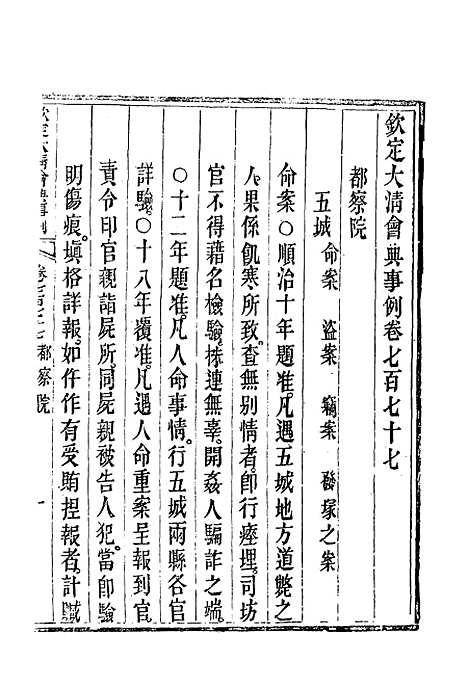 欽定大清會典事例卷七百七十七
都察院
五城 命案 盜案 竊案 發塚之案
命案○順治十年題准凡遇五城地方道斃之
人果係飢寒所致查無別情者卽行瘞理司坊
官不得藉名檢驗株連無辜開姦人騙詐之端
○十二年題准凡人命事情行五城兩縣各官
詳驗○十八年覆准凡遇人命重案呈報到官
責令印官親詣屍所同屍親被告人犯當卽驗
明傷痕塡格詳報如仵作有受賄捏報者計贓
欽定大清會典事例 卷七百七十七 都察院 一